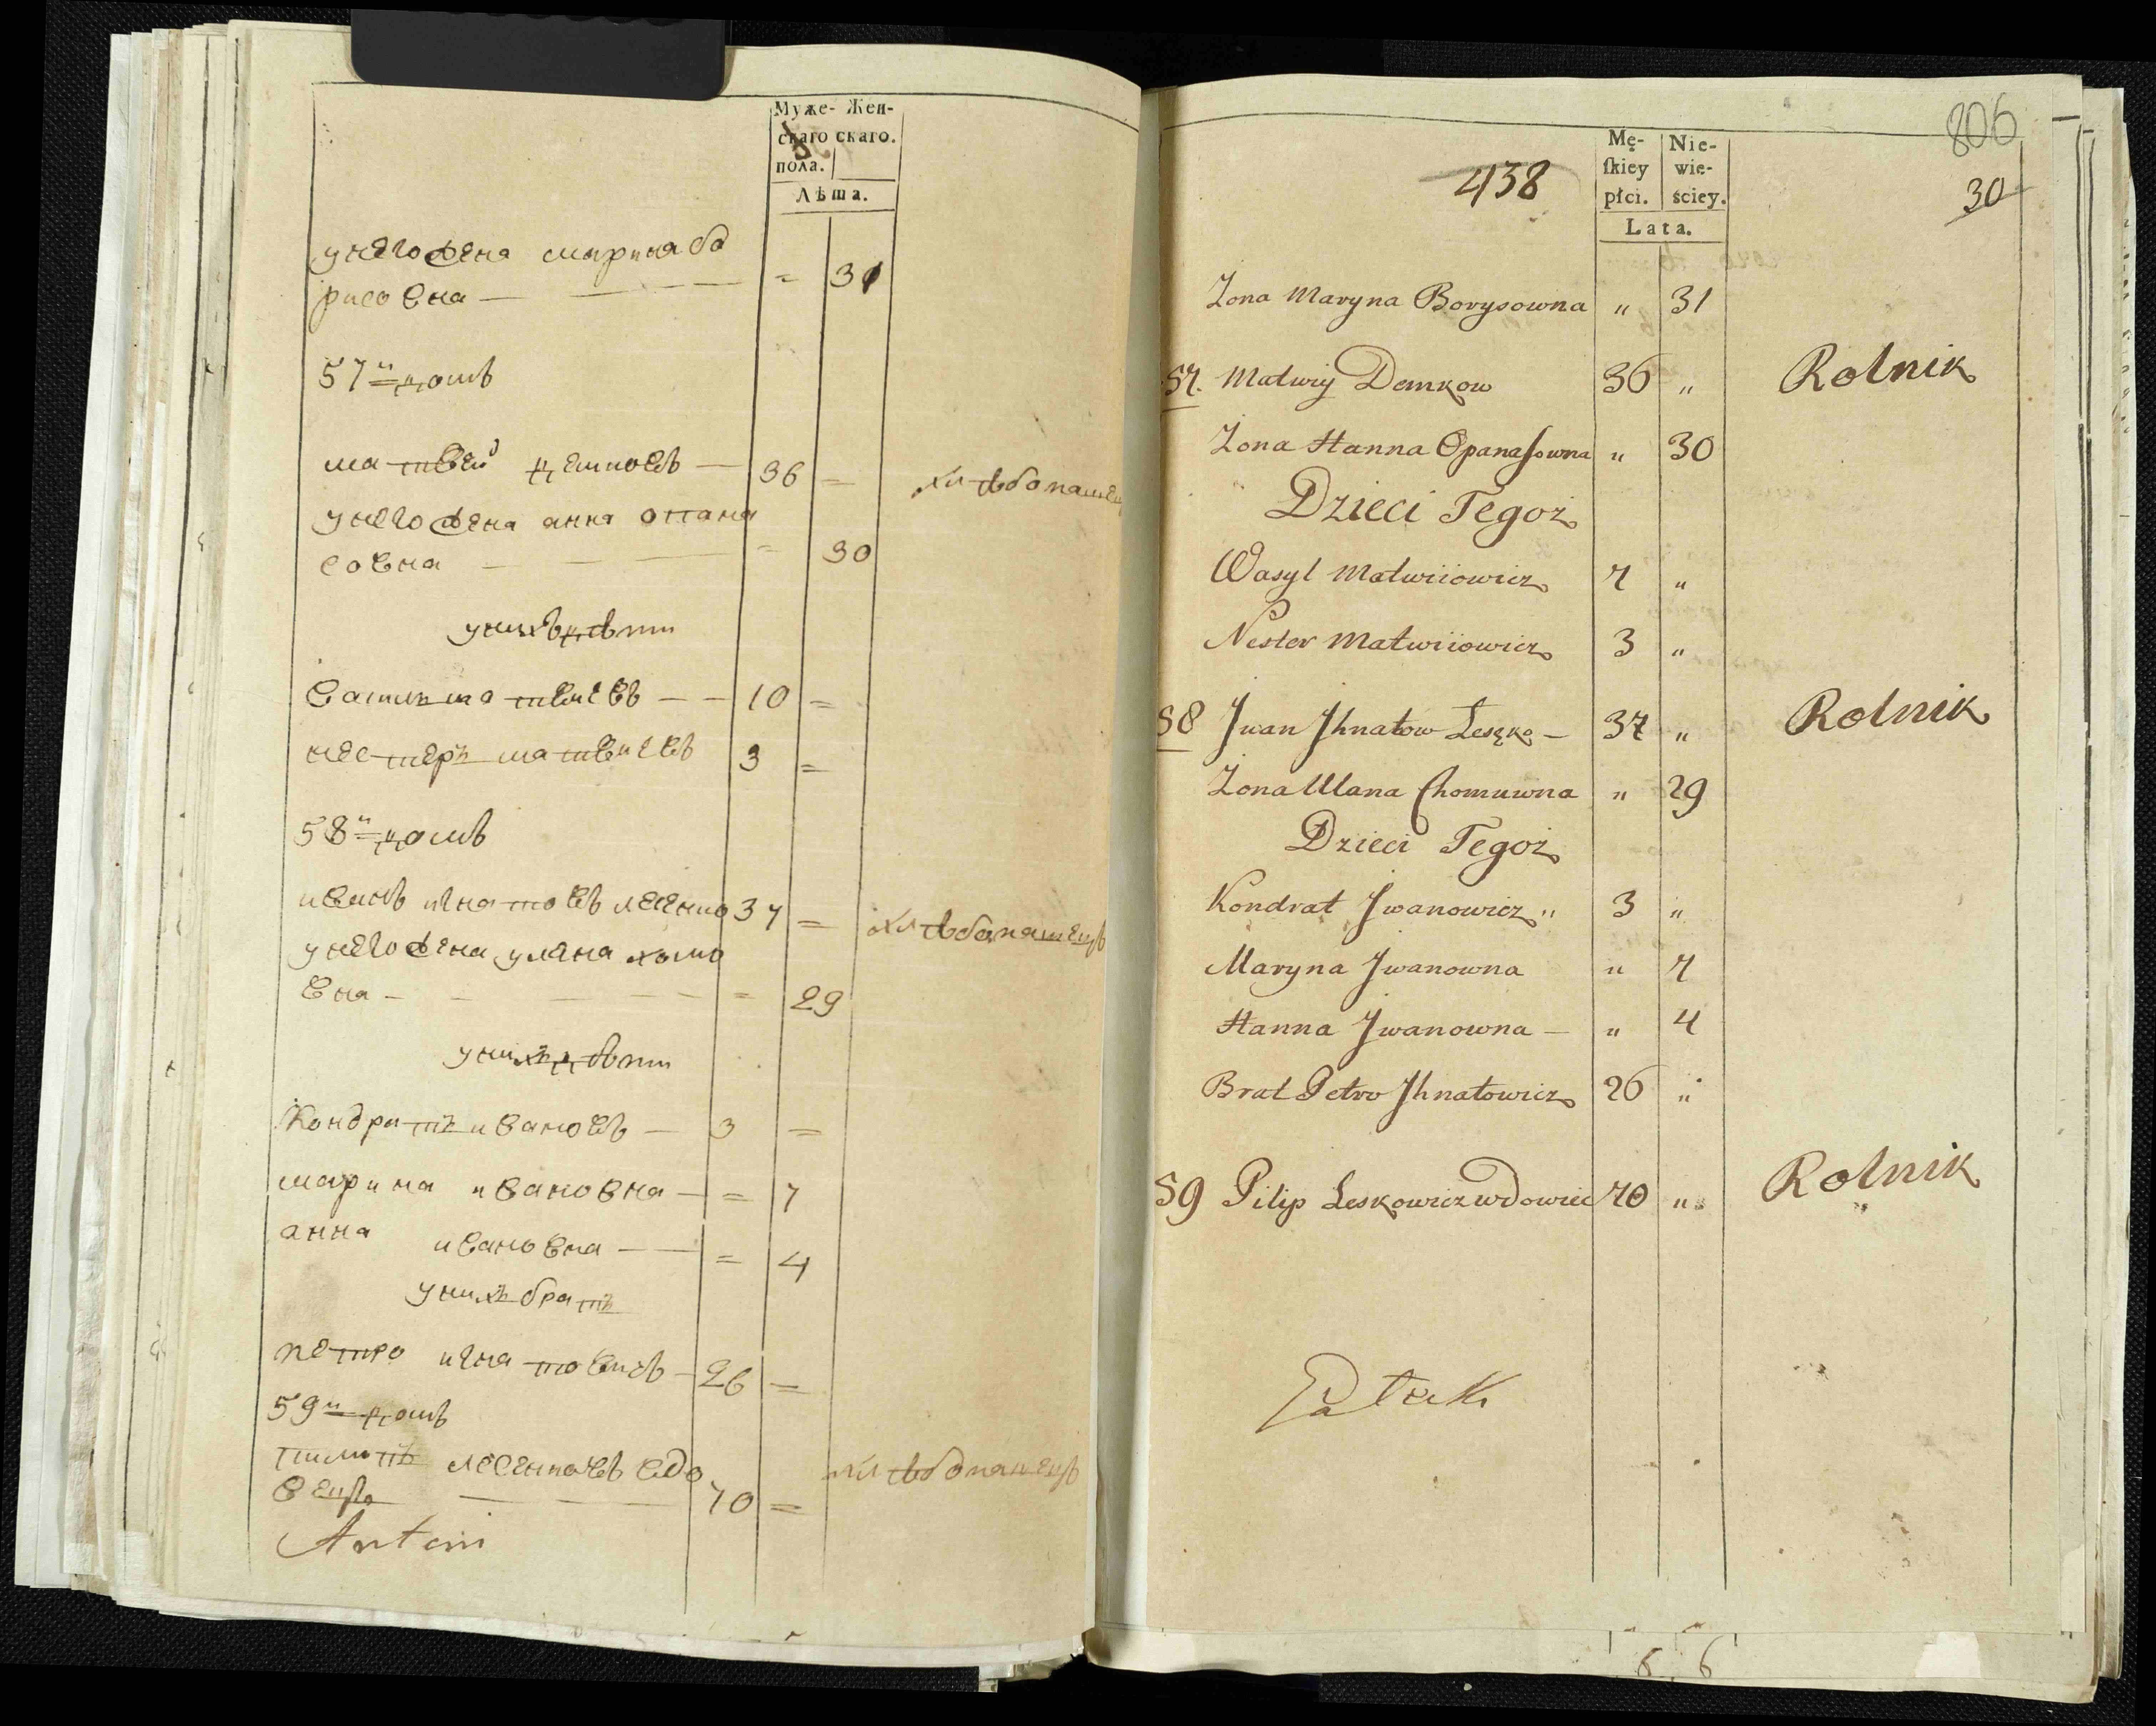 Муже- Жен-
скаго скаго.
пола.
Лѣта.
унего жена марина бо
рисовна — — — = 31
57й домъ
матвей демковъ — 36 = хлѣбопашец
унего жена анна опана
совна — — = 30
унихъ дѣти
василь матвиевъ — — 10 =
нестеръ матвиевъ 3 =
58й домъ
иванъ игнатовъ лесенко 37 = хлѣбопашецъ
унего жена уляна хомо
вна — — — = 29
унихъ дѣти
Кондратъ ивановъ — 3 =
марина ивановна — = 7
анна ивановна — — = 4
унихъ братъ
петро игнатовичъ — 26 =
59й домъ
пилипъ лесенковъ вдо
вецъ — — — 70 = хлѣбопашецъ
Antoni
806
438
Mę- Nie-
ſkiey wie-
płci. ściey.
Lata.
30
Zona Maryna Borysowna " 31
57. Matwiy Demkow 36 " Rolnik
Zona Hanna Opanaſowna " 30
Dzieci Tegoż
Wasyl Matwiiowicz 7 "
Nester Matwiiowicz 3 "
58 Jwan Jhnatow Leszko — 37 " Rolnik
Zona Ulana Chomuwna " 29
Dzieci Tegoż
Kondrat Jwanowicz " 3 "
Maryna Jwanowna " 7
Hanna Jwanowna — " 4
Brat Petro Jhnatowicz 26 "
59 Pilip Leskowicz wdowiec 70 " Rolnik
6 6